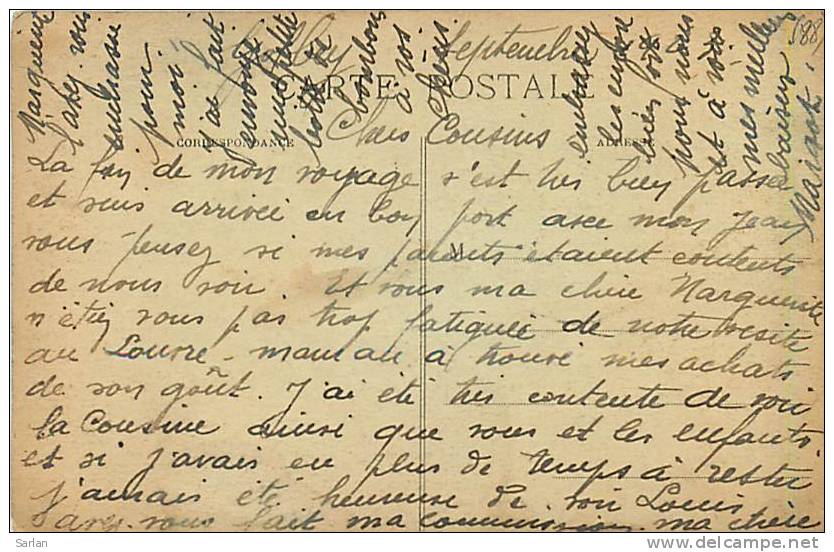 Septembre
CARTE POSTALE
Chers Cousins
CORRESPONDANCE
ADRESSE
La fin de mon voyage s'est très bien passée
et suis arrivée en bon port avec mon Jean
vous pensez si mes parents étaient contents
M
de nous voir. Et vous ma chère Marguerite
n'étiez vous pas trop fatiguée de notre visite
au Louvre - maman à trouvé mes achats
de son goût. J'ai été très contente de voir
la Cousine ainsi que vous et les enfants
et si j'avais eu plus de temps à rester
j'aurais été heureuse de voir Louis
avez-vous fait ma commission ma chère
Marguerite
l'avez-vous
embrassée
pour
moi
j'ai fait
envoyer
une petite
boîte de
bonbons
à vos
chéris
embrassez
les enfants
bien
pour nous
et à vous
mes meilleurs
baisers
188
Sarlan
www.delcampe.net